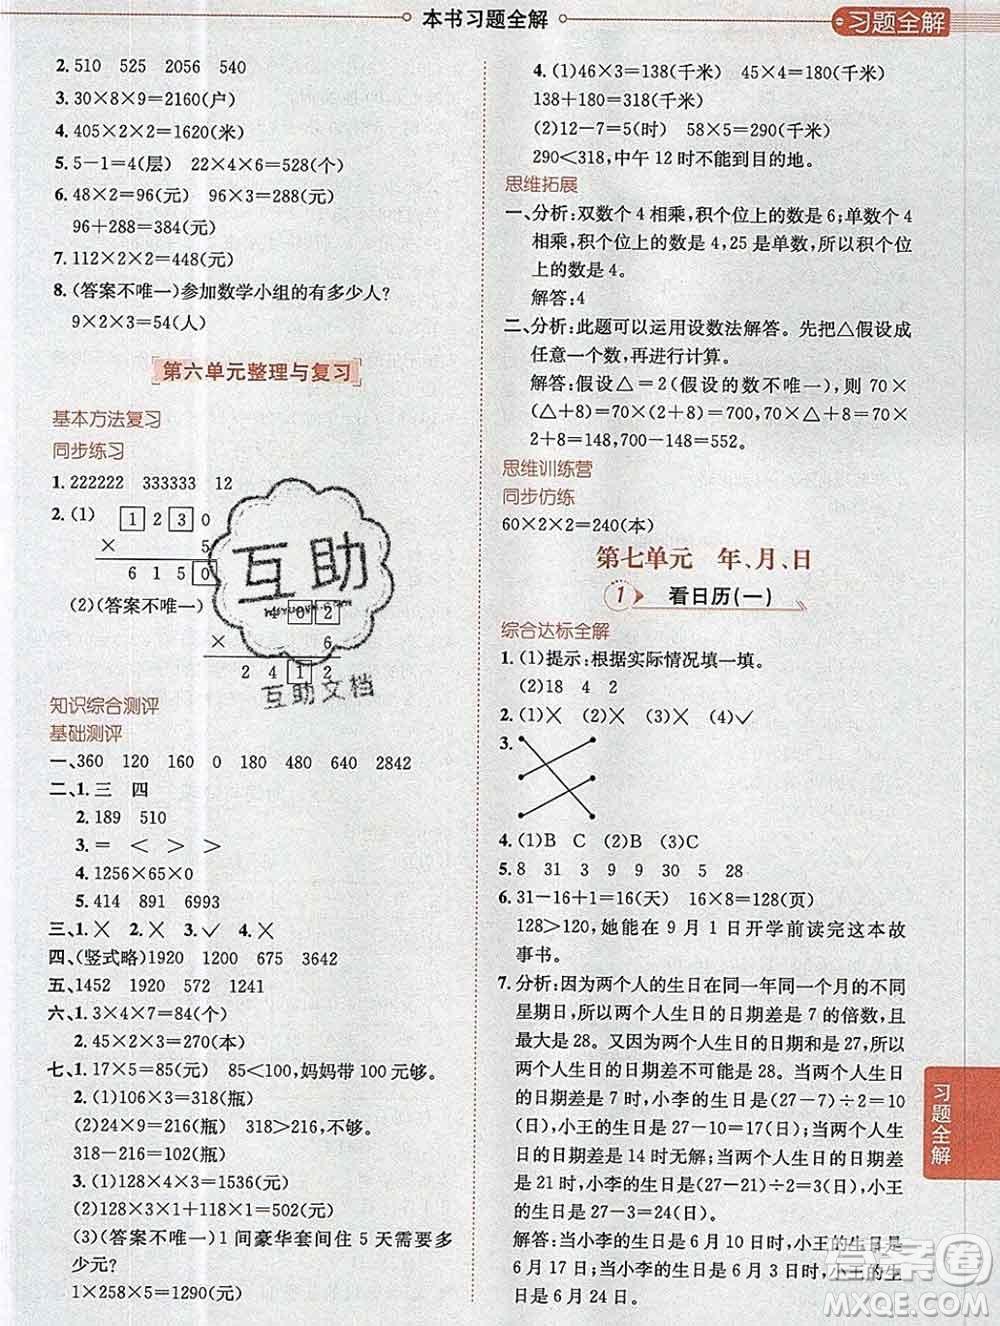 本书习题全解
习题全解
2. 510 525 2056 540
3. 30×8×9=2160(户)
4. 405×2×2=1620(米)
5. 5-1=4(层) 22×4×6=528(个)
6. 48×2=96(元) 96×3=288(元)
96+288=384(元)
7. 112×2×2=448(元)
8. (答案不唯一)参加数学小组的有多少人?
9×2×3=54(人)
第六单元整理与复习
基本方法复习
同步练习
1. 222222 333333 12
2. (1) 1 2 3 0
× 5
6 1 5 0
(2)(答案不唯一)
4 0 2
× 6
2 4 1 2
知识综合测评
基础测评
一、360 120 160 0 180 480 640 2842
二、1. 三 四
2. 189 510
3. = < > >
4. 1256×65×0
5. 414 891 6993
三、1. × 2. × 3. ✓ 4. ×
四、(竖式略)1920 1200 675 3642
五、1452 1920 572 1241
六、1. 3×4×7=84(个)
2. 45×2×3=270(本)
七、1. 17×5=85(元) 85<100,妈妈带100元够。
2. (1)106×3=318(瓶)
(2)24×9=216(瓶) 318>216,不够。
318-216=102(瓶)
3. (1)128×4×3=1536(元)
(2)128×3×1+118×1=502(元)
(3)(答案不唯一)1间豪华套间住5天需要多
少元?
1×258×5=1290(元)
4. (1)46×3=138(千米) 45×4=180(千米)
138+180=318(千米)
(2)12-7=5(时) 58×5=290(千米)
290<318,中午12时不能到目的地。
思维拓展
一、分析:双数个4相乘,积个位上的数是6;单数个4
相乘,积个位上的数是4,25是单数,所以积个位
上的数是4。
解答:4
二、分析:此题可以运用设数法解答。先把△假设成
任意一个数,再进行计算。
解答:假设△=2(假设的数不唯一),则70×
(△+8)=70×(2+8)=700,70×△+8=70×
2+8=148,700-148=552。
思维训练营
同步仿练
60×2×2=240(本)
第七单元 年、月、日
1 看日历(一)
综合达标全解
1. (1)提示:根据实际情况填一填。
(2)18 4 2
2. (1)× (2)× (3)× (4)✓
3.
4. (1)B C (2)B (3)C
5. 8 31 3 9 30 5 28
6. 31-16+1=16(天) 16×8=128(页)
128>120,她能在9月1日开学前读完这本故
事书。
7. 分析:因为两个人的生日在同一年同一个月的不同
星期日,所以两个人生日的日期差是7的倍数,且
最大是28。又因为两个人生日的日期和是27,所以
两个人生日的日期差不可能是28。当两个人生日
的日期差是7时,小李的生日是(27-7)÷2=10
(日),小王的生日是27-10=17(日);当两个人生
日的日期差是14时无解;当两个人生日的日期差
是21时,小李的生日是(27-21)÷2=3(日),小王
的生日是27-3=24(日)。
解答:当小李的生日是6月10日时,小王的生日是
6月17日;当小李的生日是6月3日时,小王的生
日是6月24日。
习题全解
互助
互助文档
答案圈
MXQE.COM